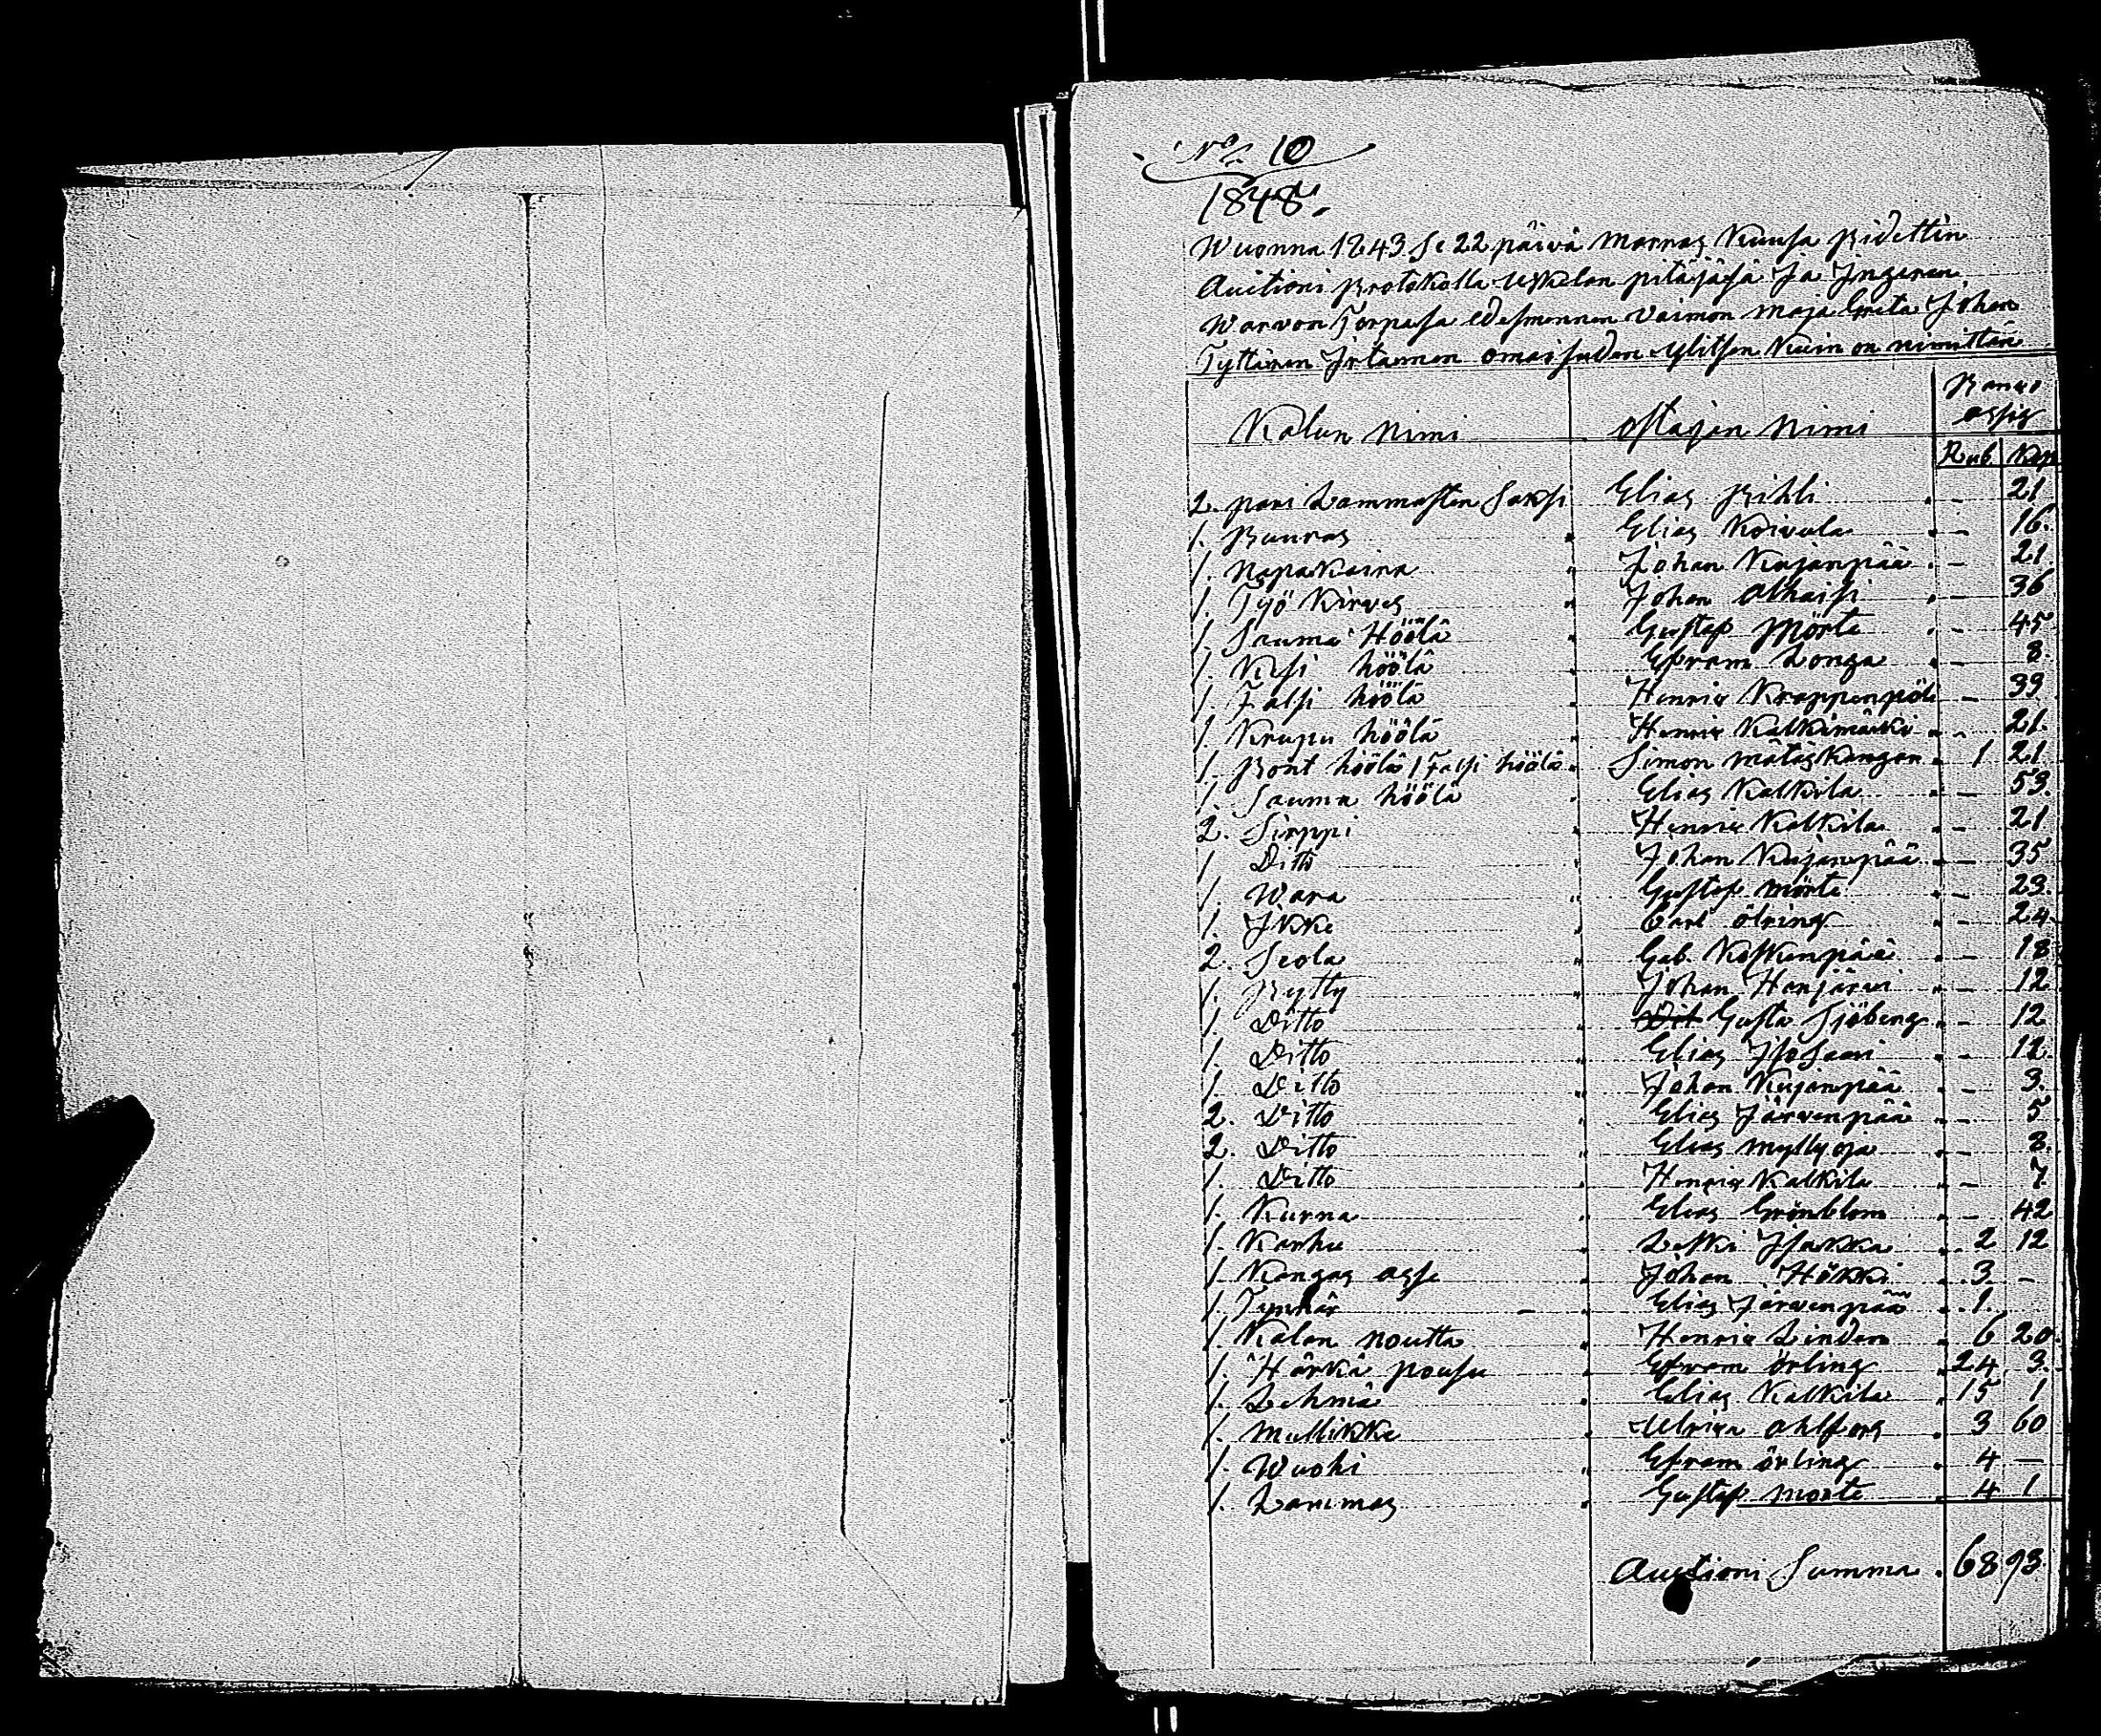 No. 10
1848.
Wuonna 1843 se 22 päivä marras Kuusa pidettin
Auctioni protokolla Uskelan pitäjäsä Ja Ingeren
Warvon Torpasa edesmennen Vaimon Maja Greta Johan
Tyttären Irtaimen omaisuden ylitsen Kuin on nimittän
Kalun Nimi ostajan Nimi Banco assig
Rub. Kop
2. pari Lammasten Saksi Elias Pihli - 21
1. Puuras Elias Koivula - 16.
1. Napakaira Johan Kujanpää - 21
1. Työ Kirves Johan Alhaisi - 36
1. Sauma Höölä Gustaf Mörte - 45
1. Kesi höölä Efram Longa - 8.
1. Falsi höölä Henric Krappenpöli - 39
1. Krupu höölä Henric Kalkimäki - 21.
1. Pont höölä 1 Falsi höölä Simon Mätäskangan 1 21
1. Sauma höölä Elias Kalkila - 53.
2. Sirppi Henric Kalkila - 21
1 Ditto Johan Kujanpää - 35
1. Wara Gustaf Mörte - 23.
1. Ikke Carl Ölring - 24
2. Seola Gab. Koskenpää - 18
1. Pytty Johan Hanjärvi - 12
1. Ditto Dit Gusta Sjöberg - 12
1. Ditto Elias Isosaari - 12.
1. Ditto Johan Kujanpää - 3.
2. Ditto Elias Järvenpää - 5
2. Ditto Elias Myllyoja - 8.
1. Ditto Henric Kalkila - 7.
1. Kurna Elias Grönblom - 42
1. Karhu Leski Isakka 2 12
1. Kangas asse Johan Hökki 3 -
1. Tynnär - Elias Järvenpää 1.
1 Kalan noutta Henric Lindern 6 20.
1. Härkä pousu Efram Örling 24 3.
1. Lehmä Elias Kalkila 15 1
1. Mullikka Ulrica Ahlfors 3 60
1. Wuohi Efram Örling 4 -
1. Lammas Gustaf Mörte 4 1
Auctioni Summa 68 93.